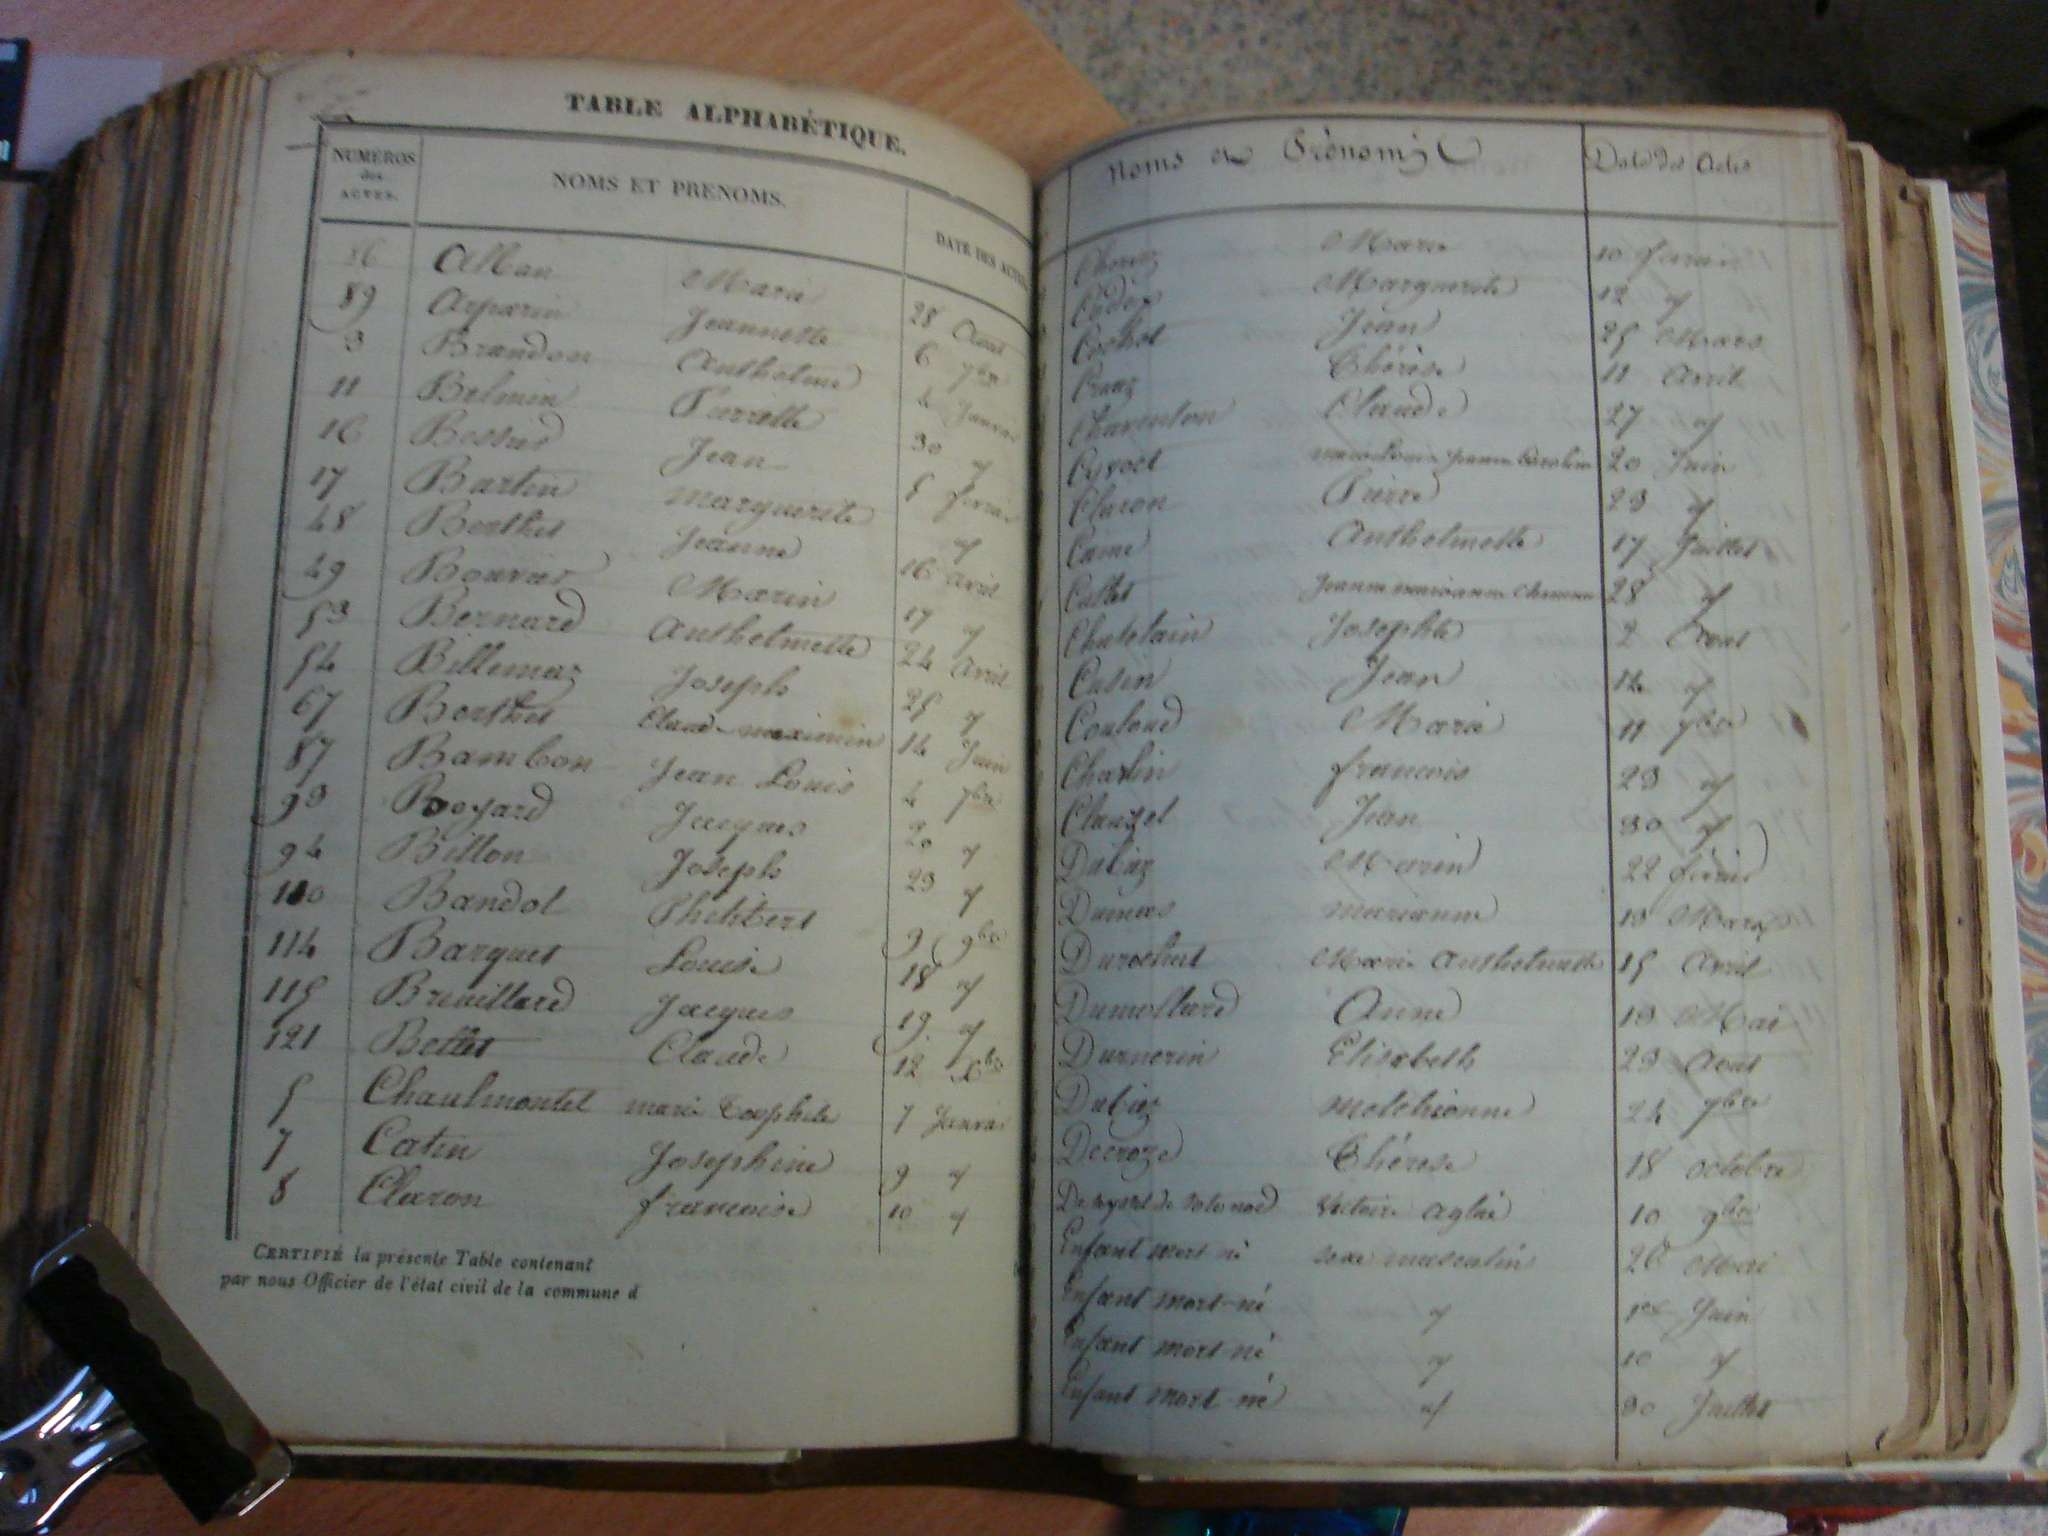 TABLE ALPHABÉTIQUE.
NUMÉROS des ACTES. NOMS ET PRÉNOMS. DATE DES ACTES
Alban Marie 28 Aout
89 Arparin Jeannette 6 7bre
3 Brandon Anthelme 4 Janvier
11 Belmin Pierrette 30 "
16 Bessier Jean 5 février
17 Bartin marguerite "
48 Berthet Jeanne 16 avril
49 Bouvier Marin 17 "
53 Bernard Anthelmette 24 Avril
54 Billemaz Joseph 25 "
67 Berthet Claude maximin 14 Juin
87 Bambon Jean Louis 4 7bre
93 Booyard Jacques 20 "
94 Billon Joseph 23 "
110 Bandol Philibert 9 9bre
114 Barquet Louise 18 "
115 Brouillard Jacques 19 "
121 Bettet Claude 12 Xbre
5 Chaulmontel marie Joséphite 7 Janvier
7 Catin Joséphine 9 "
8 Claron francoise 10 "
CERTIFIÉ la présente Table contenant
par nous Officier de l'état civil de la commune d
Noms et Prénoms Date des Actes
Marie 10 fevrier
Marguerite 12 "
Cochet Jean 25 Mars
Cruaz Thérèse 11 Avril
Charenton Claude 27 "
Cyvoct marie Louise Jeanne Caroline 20 Juin
Claron Pierre 23 "
Came Anthelmette 17 Juillet
Callet Jeanne marianne 28 "
Chatelain Josephte 2 Aout
Cusin Jean 14 "
Couloud Marie 11 7bre
Charlin francois 23 "
Clauzel Jean 30 "
Dubiez Marin 22 février
Dumas marianne 13 Mars
Durochat Marie Anthelmette 15 Avril
Dumollard Anne 13 Mai
Durnerin Elisabeth 23 Aout
Dubiez melchionne 24 7bre
Decroze Thérèse 18 octobre
De Victoire aglaé 10 9bre
Enfant mort né sexe masculin 26 Mai
Enfant mort-né " 1er Juin
Enfant mort-né " 10 "
Enfant mort-né " 30 Juillet